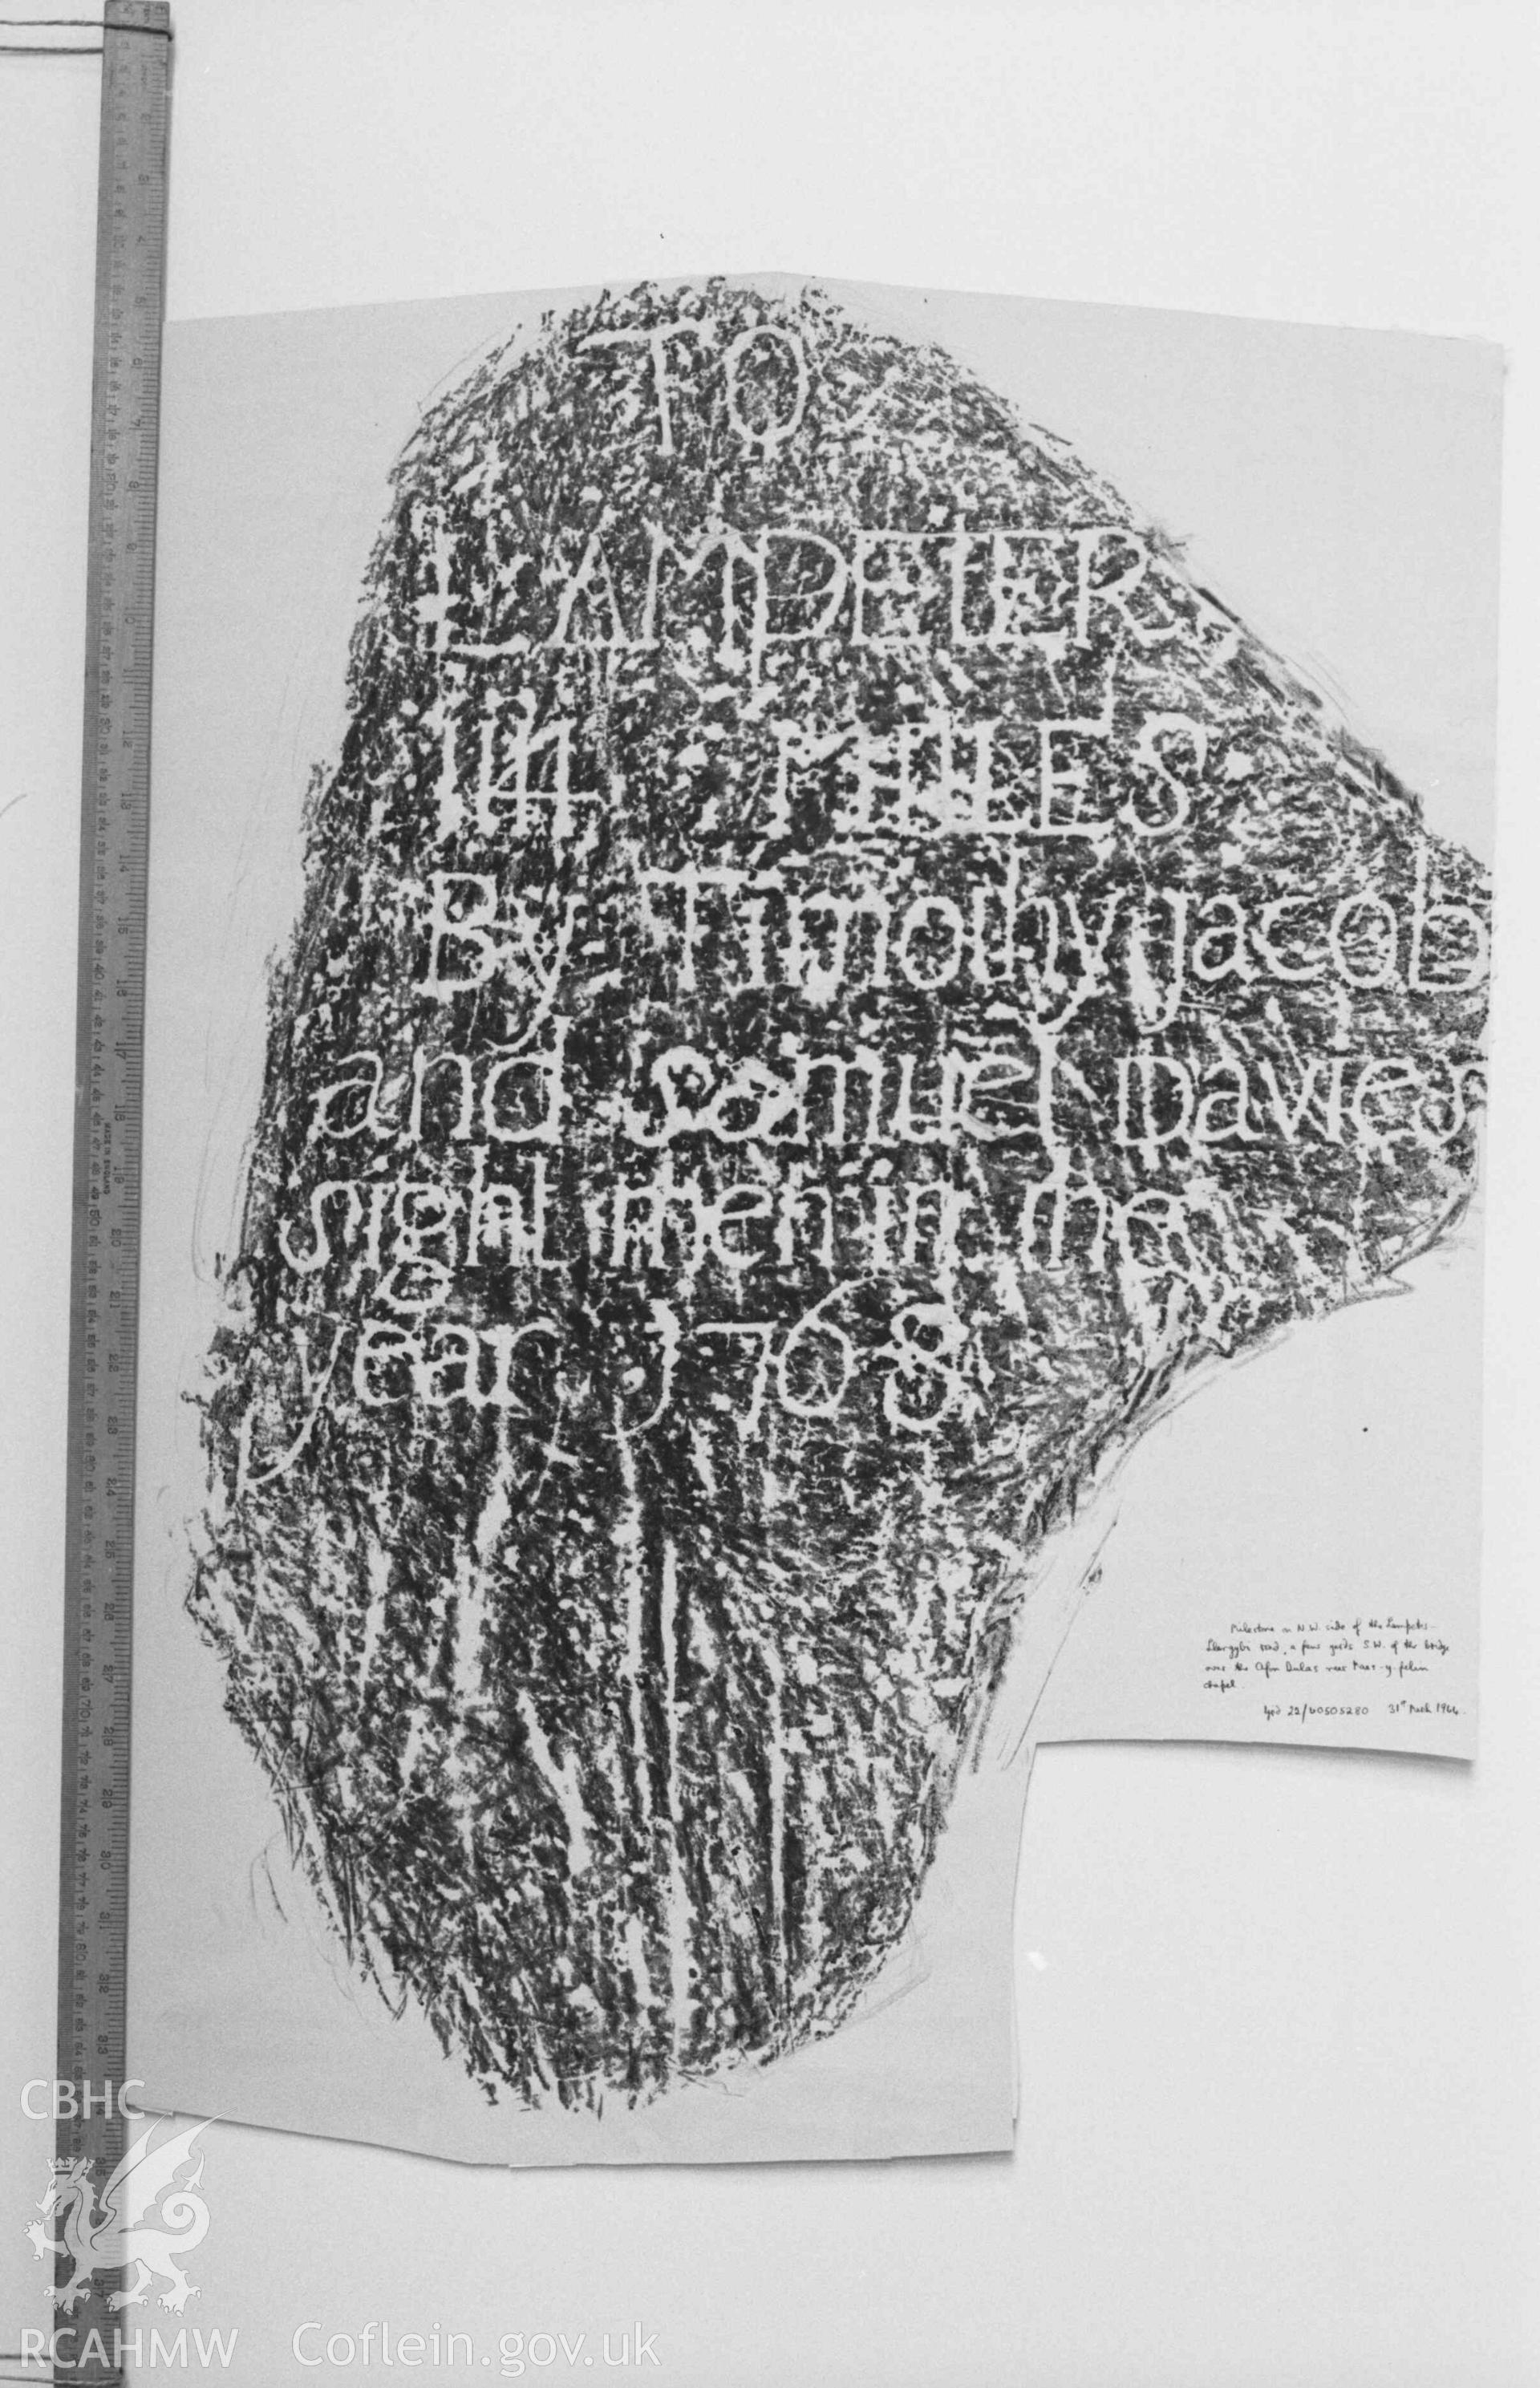 TO
LAMPETER
MILES
By Timothy Jacob
and Samuel Davies
sight men in the
year 1768
Milestone on N.W. side of the Lampeter-
Llangybi road, a few yards S.W. of the bridge
over the Afon Dulas near Maes-y-felin
chapel.
Grid 22/60505280 31st March 1964.
MADE IN ENGLAND
CBHC
RCAHMW
Coflein.gov.uk